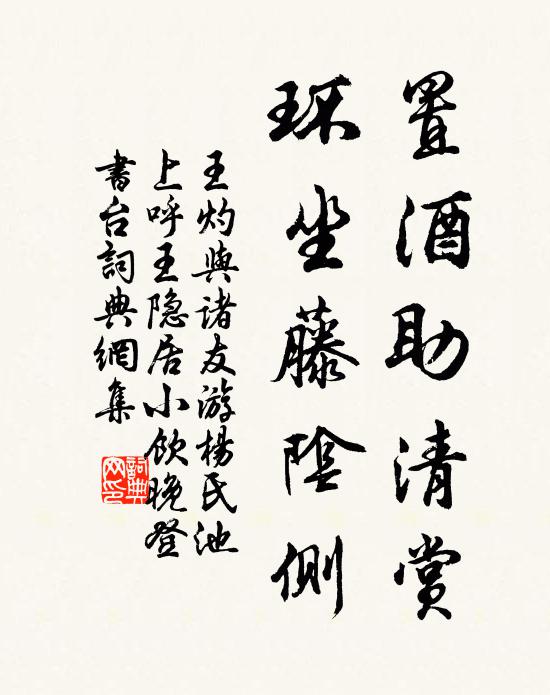 置酒助清賞
环坐藤陰側
王灼與諸友游楊氏池
上呼王隐居小飲晚登
書台詞典網集
詞典
网印